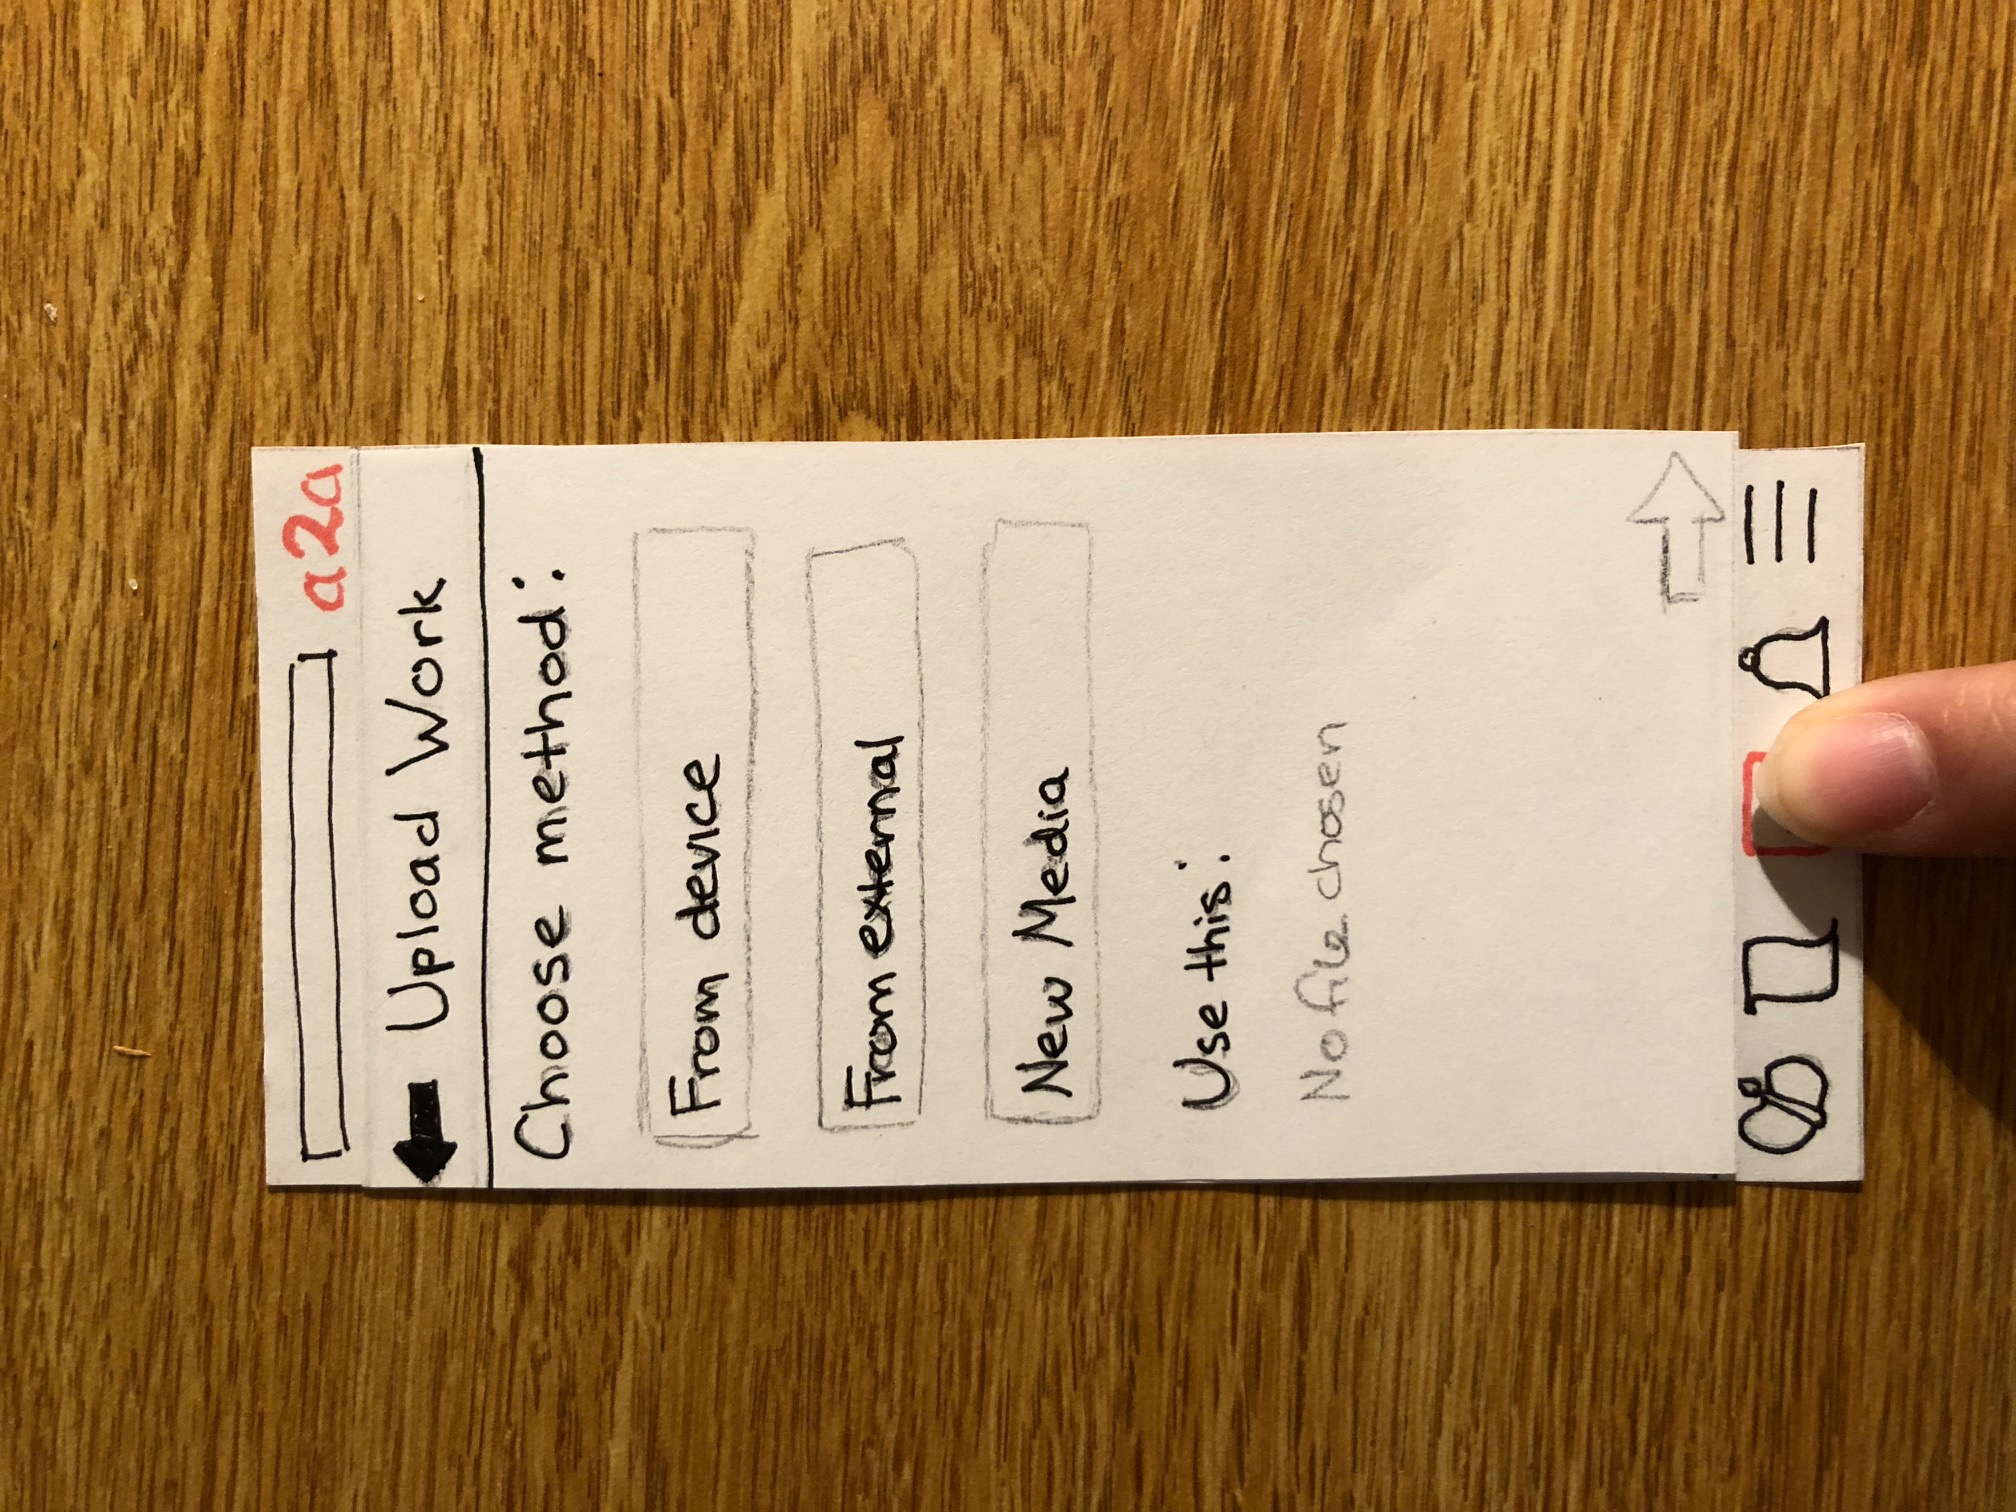 a2a
Upload Work
Choose method:
From device
From external
New Media
Use this:
No file chosen